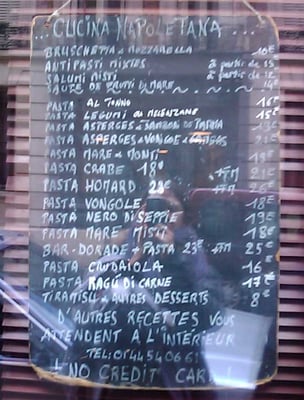 ...CUCINA NAPOLETANA...
BRUSCHETTA & MOZZARELLA 10€
ANTIPASTI MISTES à partir de 15
SALUMI MISTI à partir de 12
SAUTE DE FRUTTI DI MARE 14€
PASTA AL TONNO 15€
PASTA LEGUMI OU MELENZANE 15€
PASTA ASPERGES & JAMBON DE
PASTA ASPERGES & VONGOLE & 21€
PASTA MARE & MONTI 19€
PASTA CRABE 18€ 21€
PASTA HOMARD 26€
PASTA VONGOLE 18€
PASTA NERO DI SEPPIE 19€
PASTA MARE MISTI 18€
BAR-DORADE & PASTA 23€ 25€
PASTA 16€
PASTA RAGÙ DI CARNE 17€
TIRAMISU & AUTRES DESSERTS 8€
D'AUTRES RECETTES VOUS
ATTENDENT A L'INTÉRIEUR
TEL: 01 44 54 06 61
! NO CREDIT CARD !